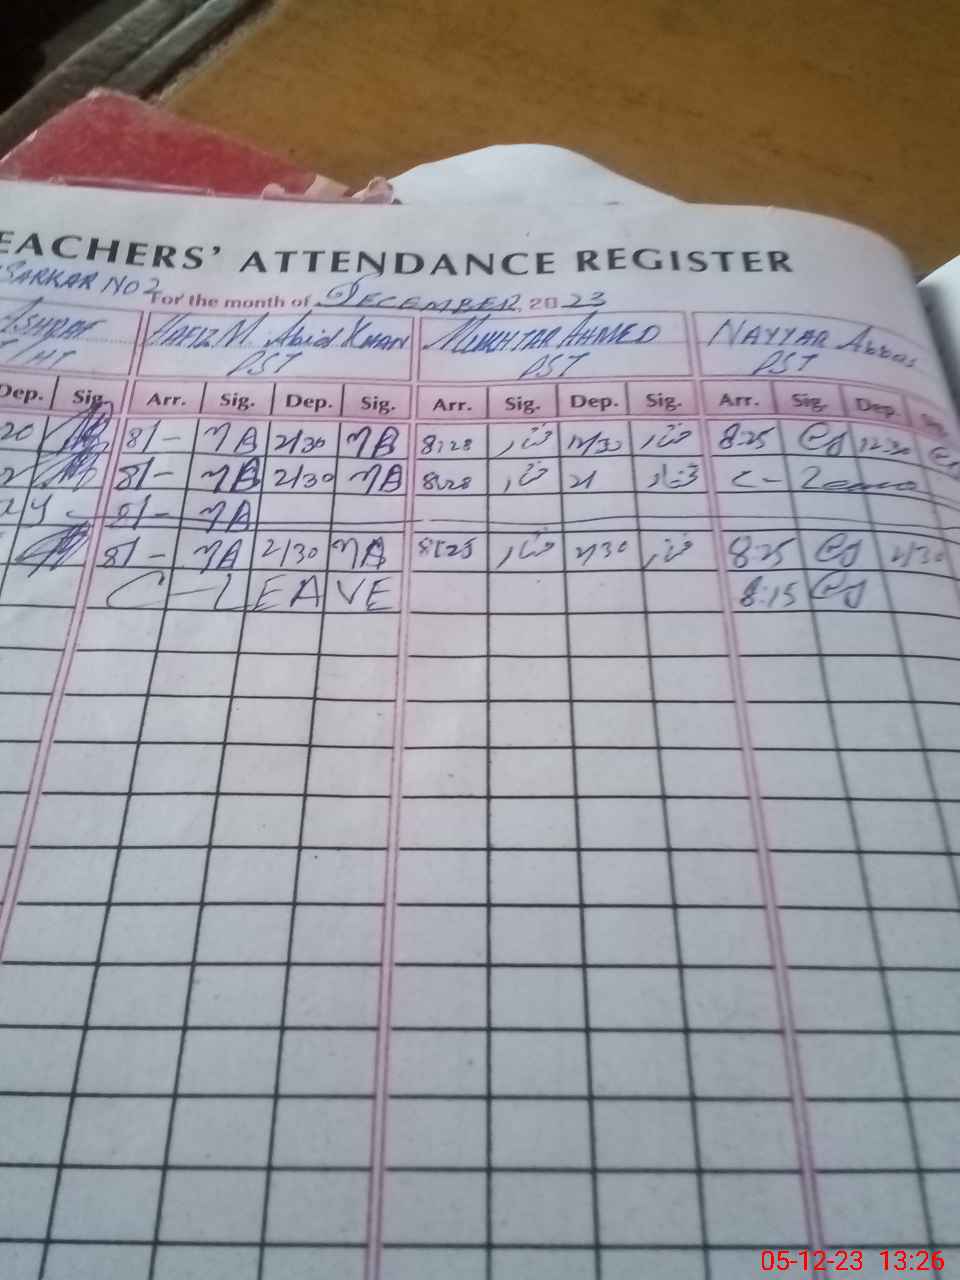 EACHERS' ATTENDANCE REGISTER
SARKAR NO 2
For the month of DECEMBER, 2023
ASHRAF HAFIZ M. Abid KHAN MUKHTAR AHMED NAYYAR Abbas
PST PST PST
Dep. Sig. Arr. Sig. Dep. Sig. Arr. Sig. Dep. Sig. Arr. Sig. Dep. Sig.
20 8/- MA 2/30 MA 8:28 مختار 12/30 مختار 8:25 12:30
8/- MA 2/30 MA 8:28 مختار 2/ مختار C-Leave
ay 8/- MA
8/- MA 2/30 MA 8:25 مختار 2/30 مختار 8:25 2/30
C-LEAVE 8:15
05-12-23 13:26